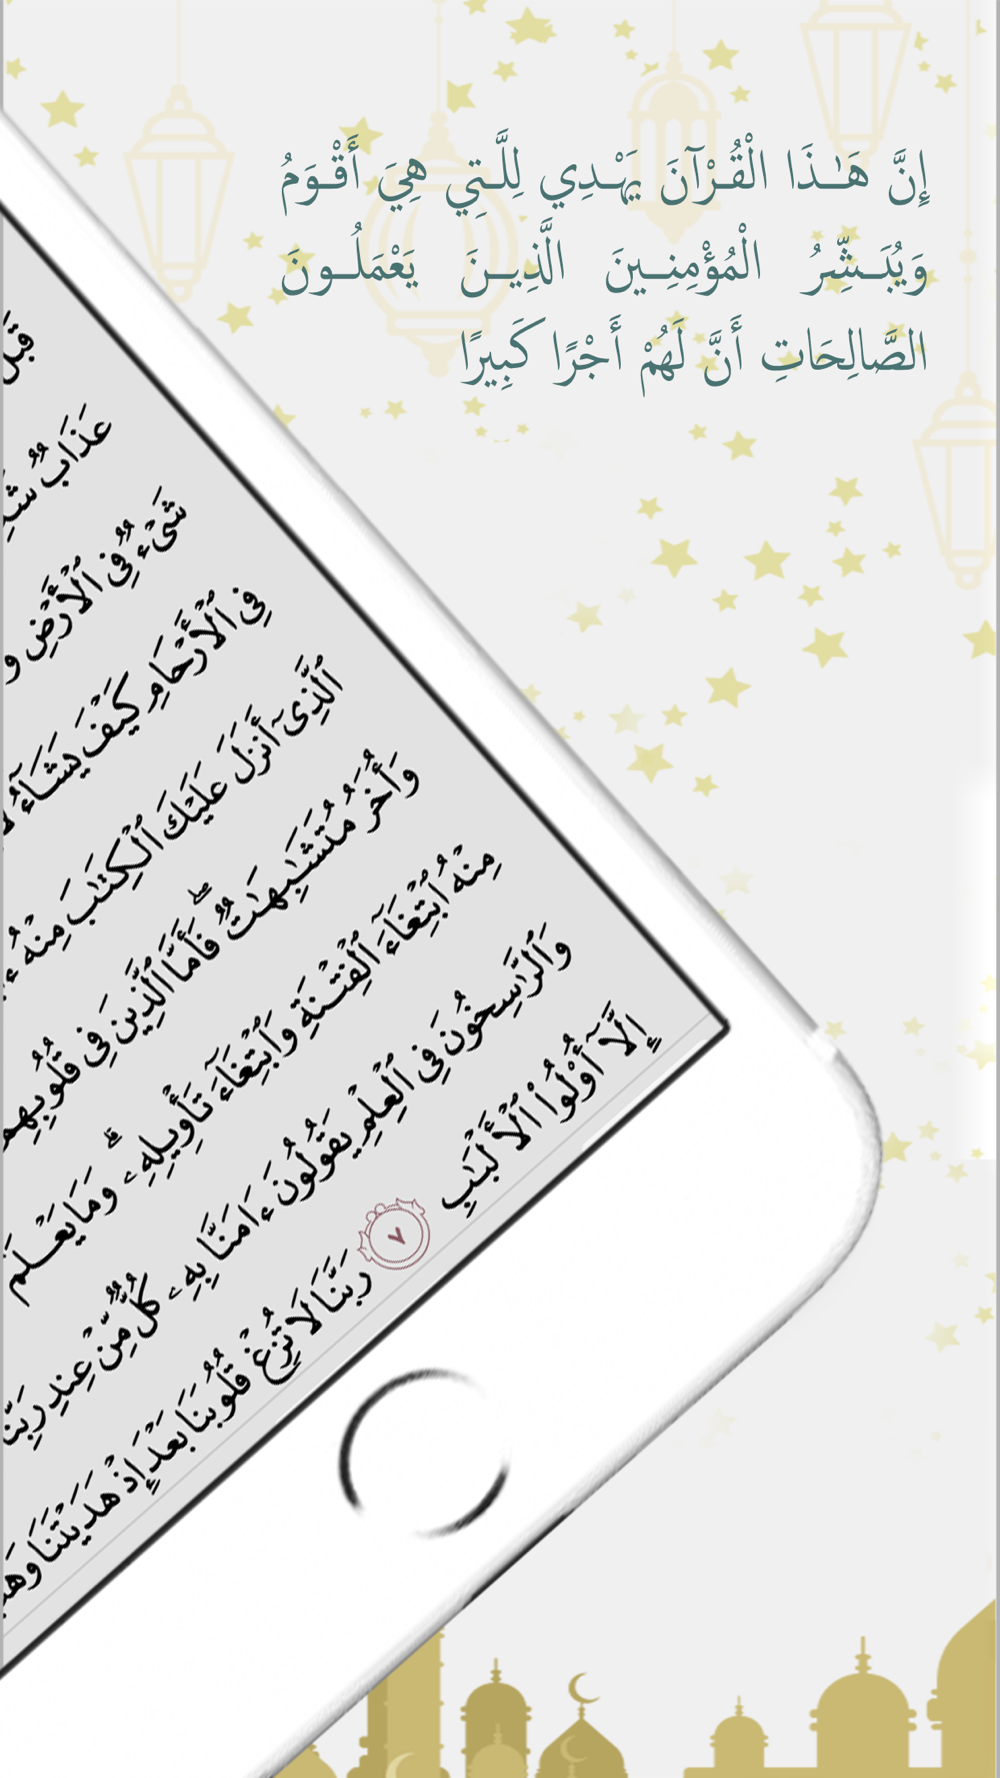 إِنَّ هَـٰذَا الْقُرْآنَ يَهْدِي لِلَّتِي هِيَ أَقْوَمُ
وَيُبَشِّرُ الْمُؤْمِنِينَ الَّذِينَ يَعْمَلُونَ
الصَّالِحَاتِ أَنَّ لَهُمْ أَجْرًا كَبِيرًا
عَذَابٌ
شَىْءٌ فِى ٱلْأَرْضِ
فِى ٱلْأَرْحَامِ كَيْفَ يَشَآءُ
ٱلَّذِىٓ أَنزَلَ عَلَيْكَ ٱلْكِتَٰبَ مِنْهُ
وَأُخَرُ مُتَشَٰبِهَٰتٌ ۖ فَأَمَّا ٱلَّذِينَ فِى قُلُوبِهِمْ
مِنْهُ ٱبْتِغَآءَ ٱلْفِتْنَةِ وَٱبْتِغَآءَ تَأْوِيلِهِۦ ۗ وَمَا يَعْلَمُ
وَٱلرَّٰسِخُونَ فِى ٱلْعِلْمِ يَقُولُونَ ءَامَنَّا بِهِۦ كُلٌّ مِّنْ عِندِ رَبِّنَا
إِلَّآ أُو۟لُوا۟ ٱلْأَلْبَٰبِ ٧ رَبَّنَا لَا تُزِغْ قُلُوبَنَا بَعْدَ إِذْ هَدَيْتَنَا